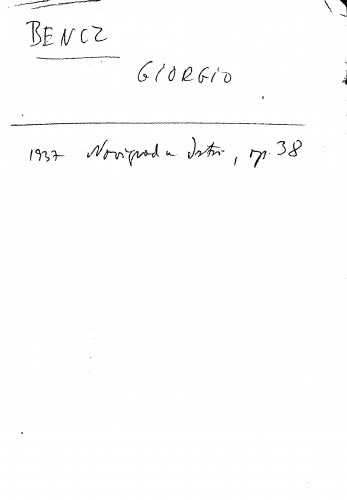 BENCZ
GIORGIO
1937 Novigrad u Istri, op. 38